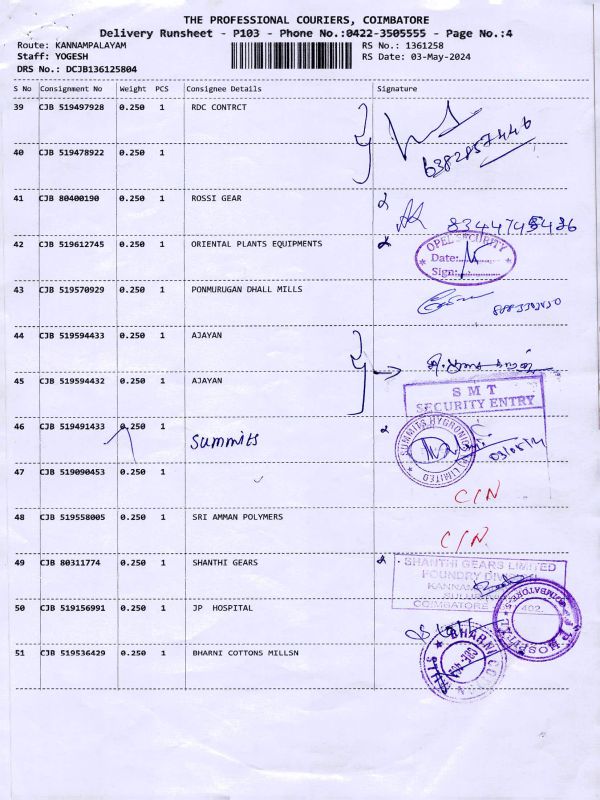 THE PROFESSIONAL COURIERS, COIMBATORE
Delivery Runsheet - P103 - Phone No.:0422-3505555 - Page No.:4
Route: KANNAMPALAYAM RS No.: 1361258
Staff: YOGESH RS Date: 03-May-2024
DRS No.: DCJB136125804
S No Consignment No Weight PCS Consignee Details Signature
39 CJB 519497928 0.250 1 RDC CONTRCT
6382857446
40 CJB 519478922 0.250 1
41 CJB 80400190 0.250 1 ROSSI GEAR
42 CJB 519612745 0.250 1 ORIENTAL PLANTS EQUIPMENTS
OPEL SECURITY
Date:
Sign:
43 CJB 519570929 0.250 1 PONMURUGAN DHALL MILLS
44 CJB 519594433 0.250 1 AJAYAN
45 CJB 519594432 0.250 1 AJAYAN
SMT
SECURITY ENTRY
46 CJB 519491433 0.250 1 Summits
SUMMITS HYGRONICS (P) LIMITED
47 CJB 519090453 0.250 1
C/N
48 CJB 519558005 0.250 1 SRI AMMAN POLYMERS
C/N.
49 CJB 80311774 0.250 1 SHANTHI GEARS
SHANTHI GEARS LIMITED
FOUNDRY DIVISION
COIMBATORE 402.
50 CJB 519156991 0.250 1 JP HOSPITAL
51 CJB 519536429 0.250 1 BHARNI COTTONS MILLSN
BHARNI